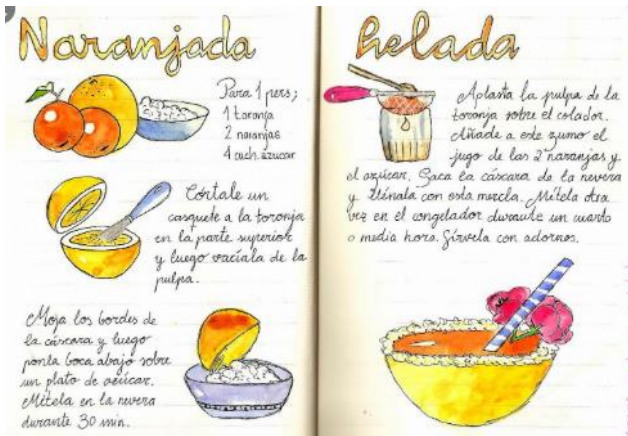 Naranjada
Para 1 pers;
1 toronja
2 naranjas
4 cuch. azucar
Córtale un
casquete a la toronja
en la parte superior
y luego vacíala de la
pulpa.
Moja los bordes de
la cáscara y luego
ponla boca abajo sobre
un plato de azúcar.
Métela en la nevera
durante 30 min.
helada
Aplasta la pulpa de la
toronja sobre el colador.
Añade a este zumo el
jugo de las 2 naranjas y
el azúcar. Saca la cáscara de la nevera
y llénala con esta mezcla. Métela otra
vez en el congelador durante un cuarto
o media hora. Sírvela con adornos.